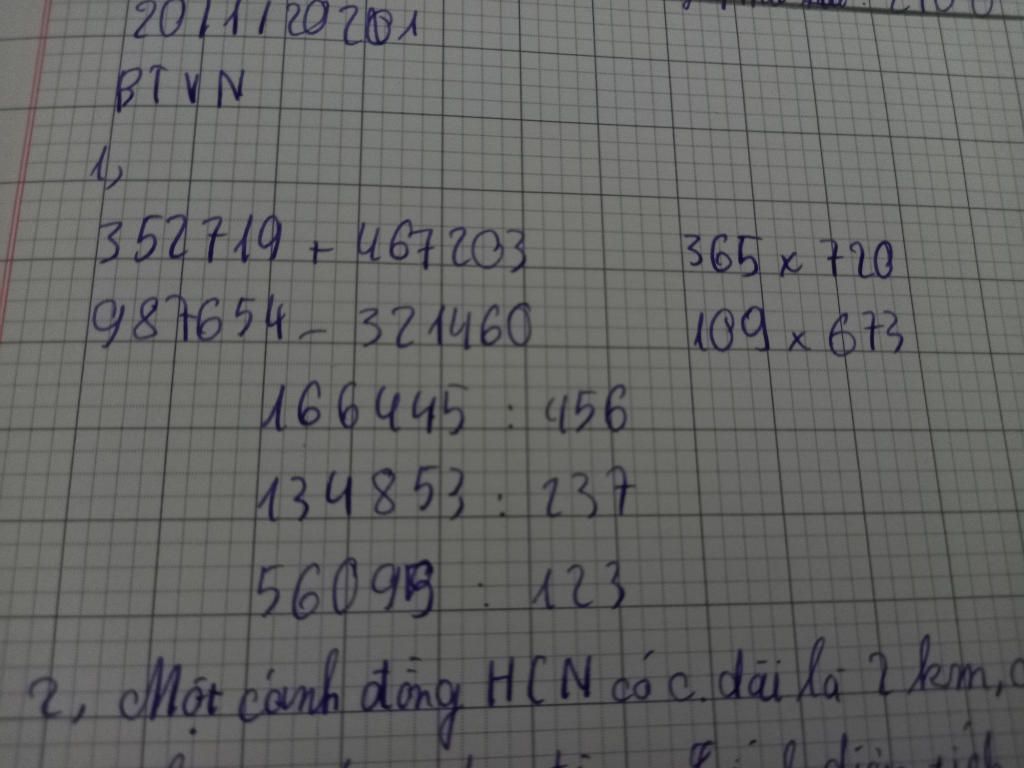 20/1/2021
BTVN
1,
352719 + 467203 365 x 720
987654 - 321460 109 x 673
166445 : 456
134853 : 237
: 123
2, Một cánh đồng HCN có c. dài là 2 km,